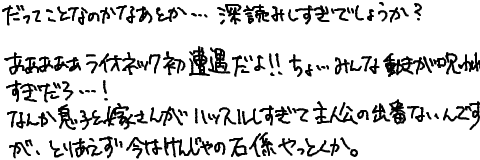 だってことなのかなあとか… 深読みしすぎでしょうか?
ああああぁライオネック初遭遇だよ!! ちょ…みんな動きが呪われ
すぎだろ…!
なんか息子と嫁さんがハッスルしすぎて主人公の出番ないんです
が、とりあえず今はけんじゃの石係やっとくか。